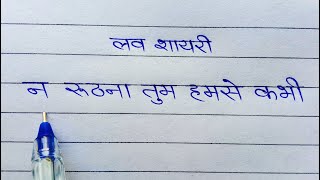 लव शायरी
न रूठना तुम हमसे कभी